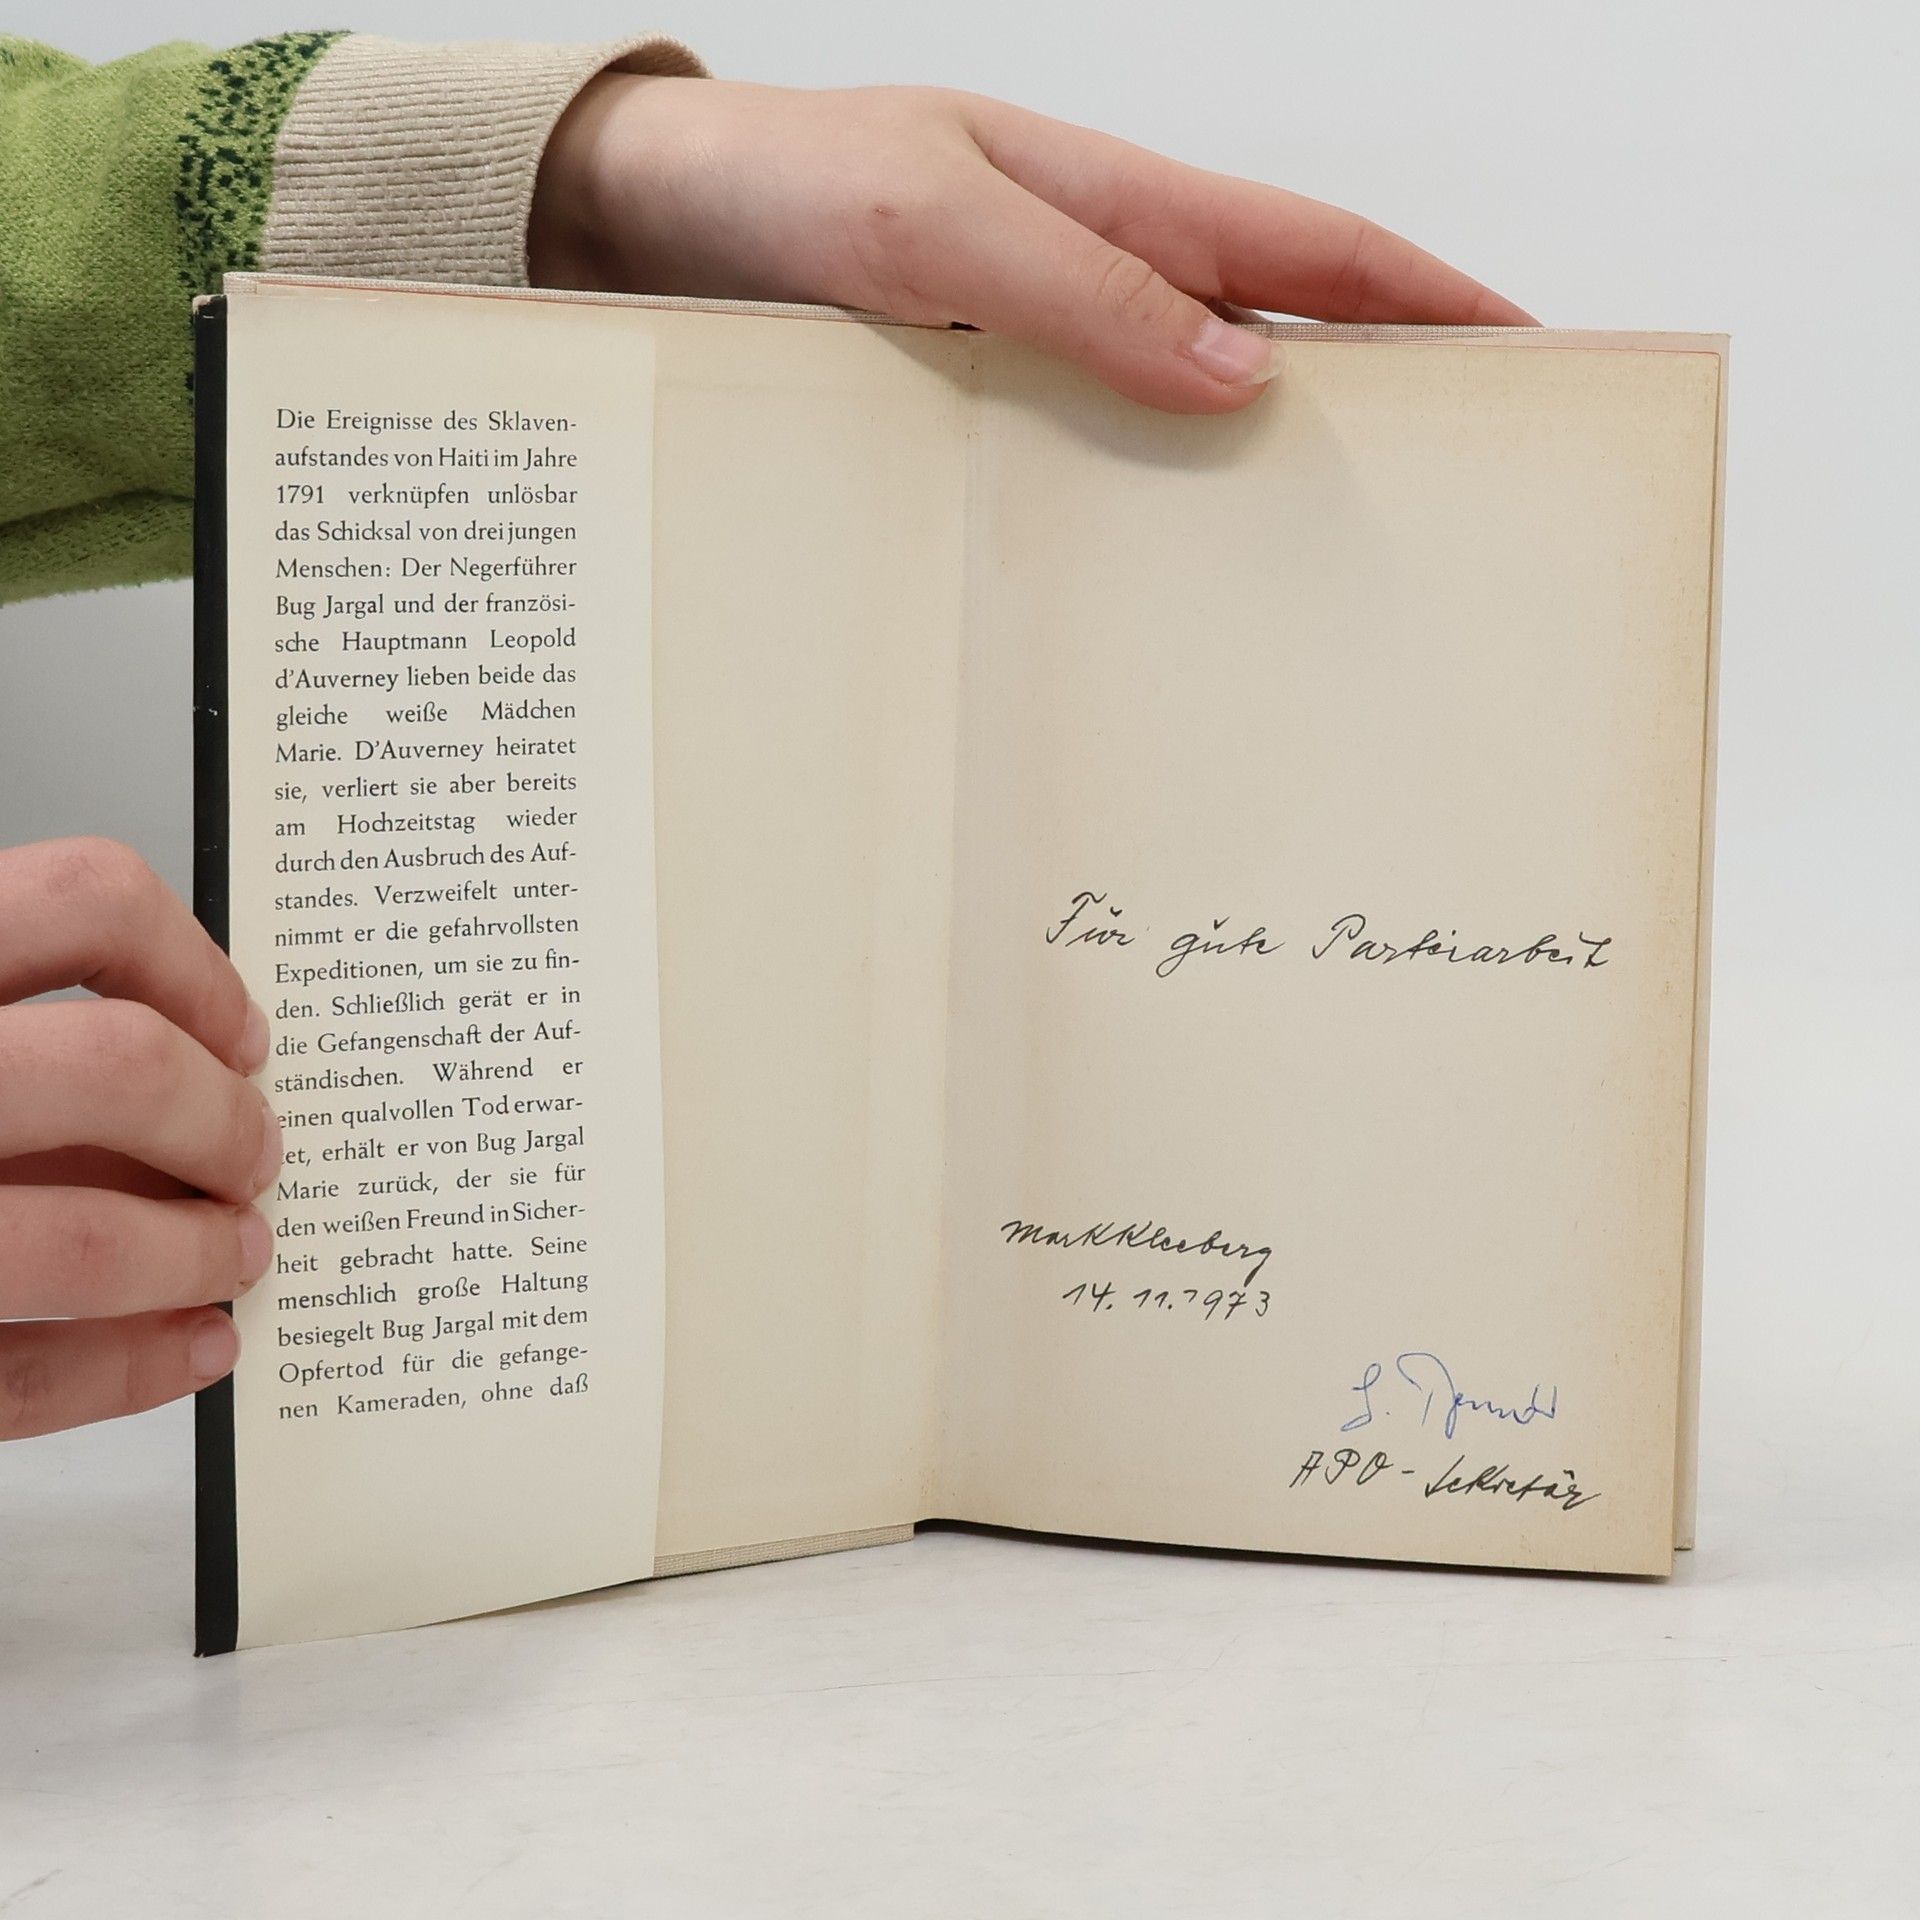 Die Ereignisse des Sklaven-
aufstandes von Haiti im Jahre
1791 verknüpfen unlösbar
das Schicksal von drei jungen
Menschen: Der Negerführer
Bug Jargal und der französi-
sche Hauptmann Leopold
d'Auverney lieben beide das
gleiche weiße Mädchen
Marie. D'Auverney heiratet
sie, verliert sie aber bereits
am Hochzeitstag wieder
durch den Ausbruch des Auf-
standes. Verzweifelt unter-
nimmt er die gefahrvollsten
Expeditionen, um sie zu fin-
den. Schließlich gerät er in
die Gefangenschaft der Auf-
ständischen. Während er
einen qualvollen Tod erwar-
tet, erhält er von Bug Jargal
Marie zurück, der sie für
den weißen Freund in Sicher-
heit gebracht hatte. Seine
menschlich große Haltung
besiegelt Bug Jargal mit dem
Opfertod für die gefange-
nen Kameraden, ohne daß
Für gute Parteiarbeit
Markkleeberg
14. 11. 1973
APO-Sekretär